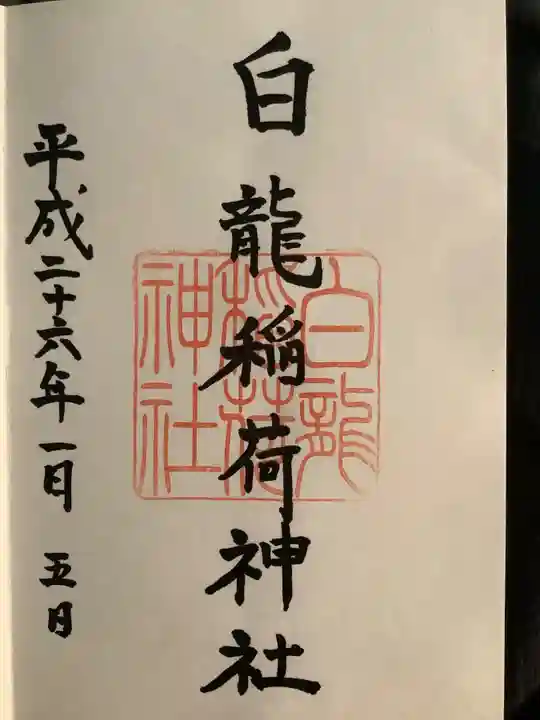 白龍稲荷神社
平成二十六年一月五日
白龍
稲荷
神社